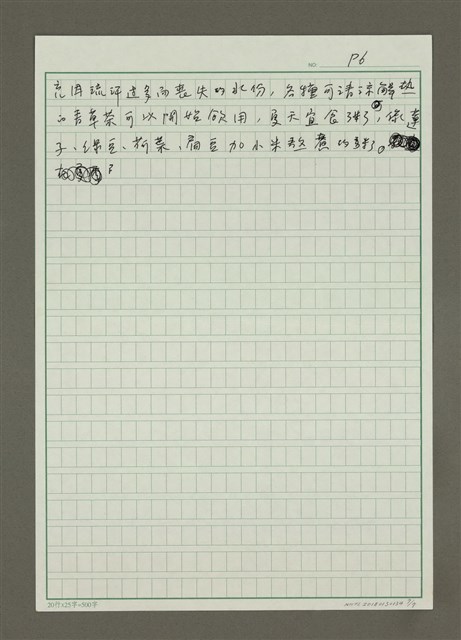 NO. P6
充因流汗过多而丧失的水份，各種可清凉解热
的青草茶可以開始飲用，夏天宜食粥，像蓮
子、绿豆、荷葉、扁豆加小米熬煮的粥。
20行×25字=500字